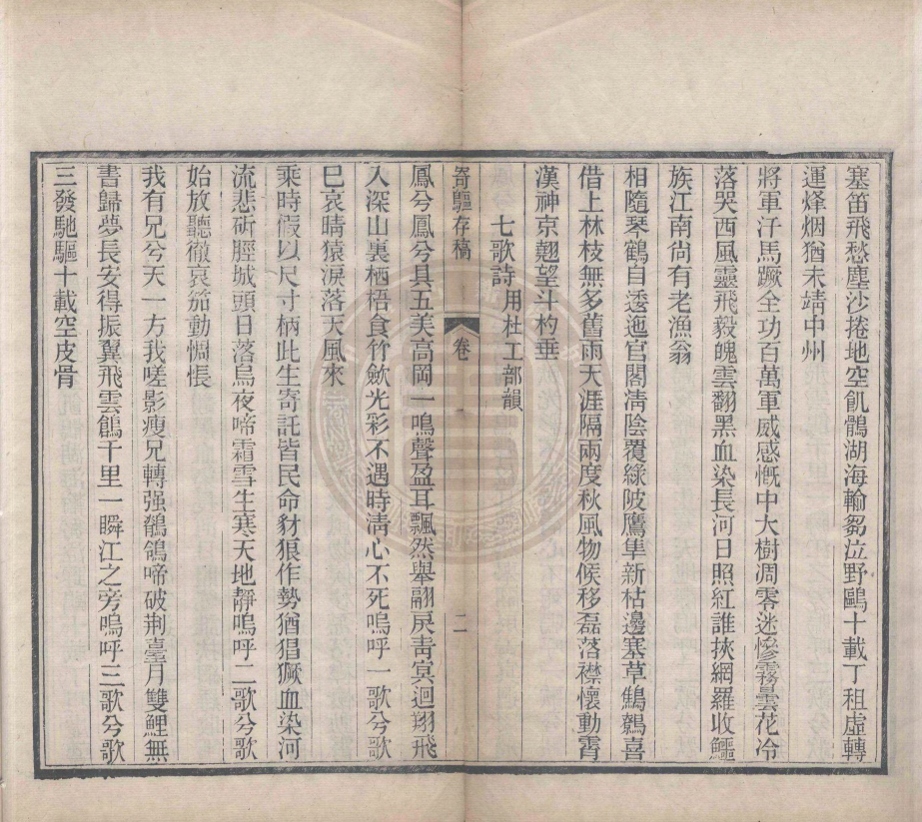 塞笛飛愁塵沙捲地空飢鶻湖海輸芻泣野鷗十載丁租虛轉
運烽烟猶未靖中州
將軍汗馬蹶全功百萬軍威感慨中大樹凋零迷慘霧曇花冷
落哭西風靈飛毅魄雲翻黑血染長河日照紅誰挾網羅收鱷
族江南尙有老漁翁
相隨琴鶴自逶迤官閣淸陰覆綠陂鷹隼新枯邊塞草鷦鷯喜
借上林枝無多舊雨天涯隔兩度秋風物候移磊落襟懷動霄
漢神京翹望斗杓垂
七歌詩用杜工部韻
寄驅存稿 卷一 二
鳳兮鳳兮具五美高岡一鳴聲盈耳飄然舉翮戾靑冥迴翔飛
入深山裏栖梧食竹斂光彩不遇時淸心不死嗚呼一歌兮歌
巳哀晴猿淚落天風來
乘時假以尺寸柄此生寄託皆民命豺狼作勢猶猖獗血染河
流悲斫脛城頭日落烏夜啼霜雪生寒天地靜嗚呼二歌兮歌
始放聽徹哀笳動惆悵
我有兄兮天一方我嗟影瘦兄轉强鶺鴒啼破荆臺月雙鯉無
書歸夢長安得振翼飛雲鶬千里一瞬江之旁嗚呼三歌兮歌
三發馳驅十載空皮骨